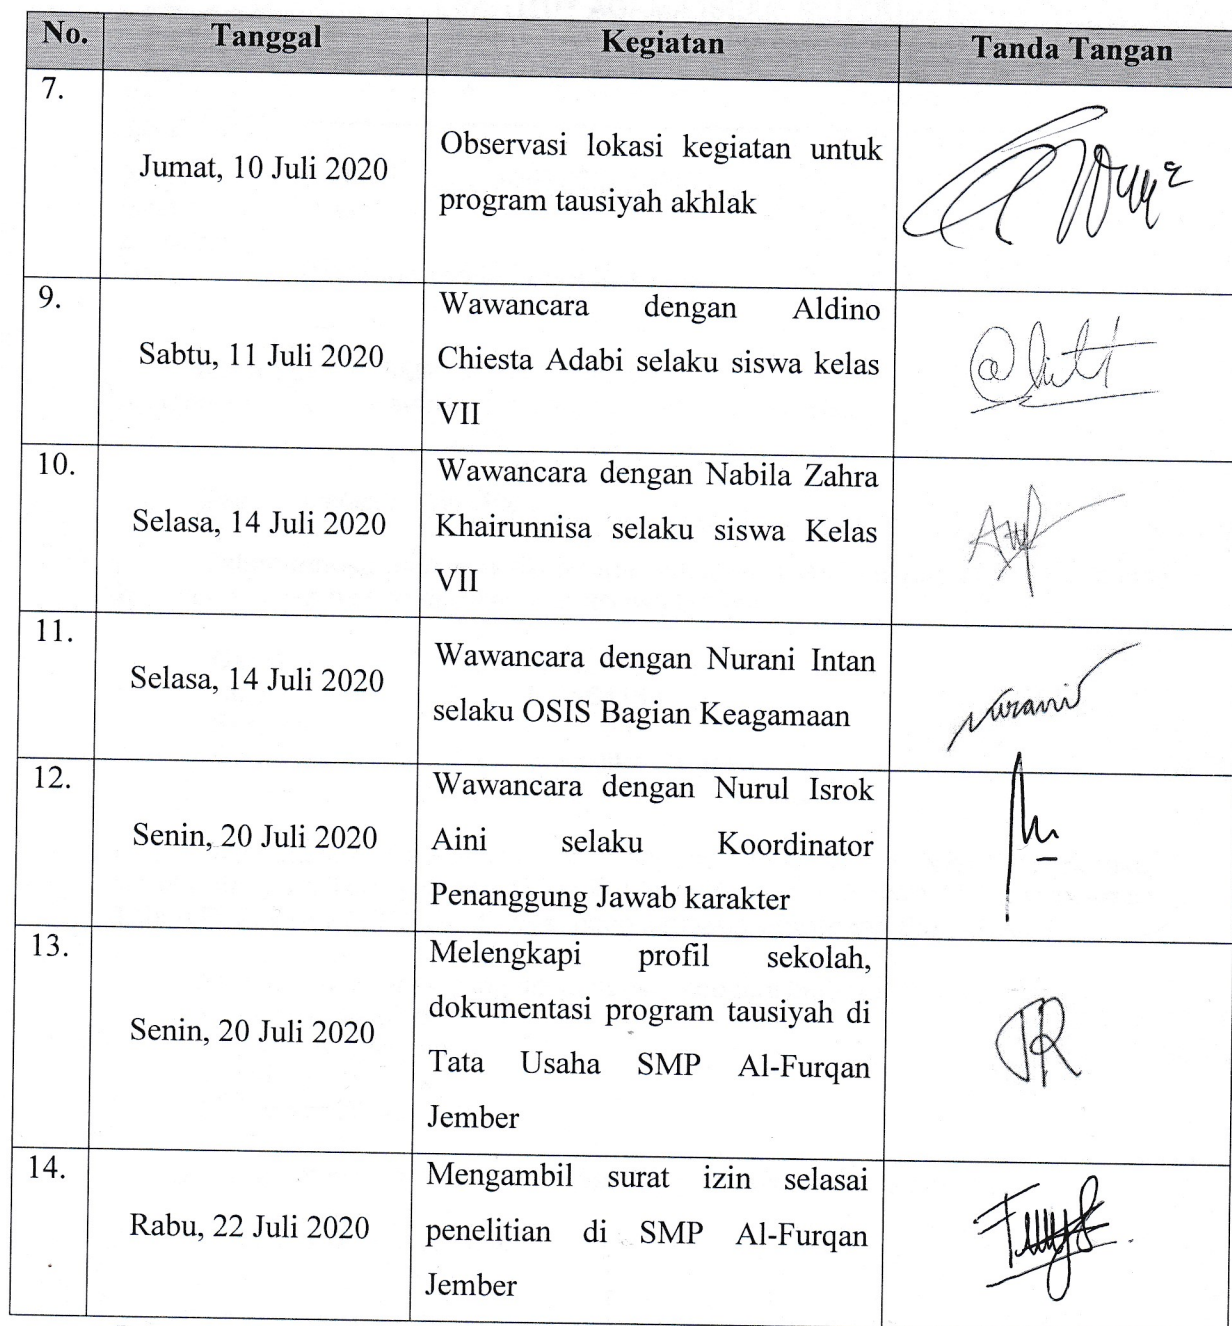 No. Tanggal Kegiatan Tanda Tangan
7.
Jumat, 10 Juli 2020
Observasi lokasi kegiatan untuk
program tausiyah akhlak
9.
Sabtu, 11 Juli 2020
Wawancara dengan Aldino
Chiesta Adabi selaku siswa kelas
VII
10.
Selasa, 14 Juli 2020
Wawancara dengan Nabila Zahra
Khairunnisa selaku siswa Kelas
VII
11.
Selasa, 14 Juli 2020
Wawancara dengan Nurani Intan
selaku OSIS Bagian Keagamaan
Nurani
12.
Senin, 20 Juli 2020
Wawancara dengan Nurul Isrok
Aini selaku Koordinator
Penanggung Jawab karakter
13.
Senin, 20 Juli 2020
Melengkapi profil sekolah,
dokumentasi program tausiyah di
Tata Usaha SMP Al-Furqan
Jember
14.
Rabu, 22 Juli 2020
Mengambil surat izin selasai
penelitian di SMP Al-Furqan
Jember